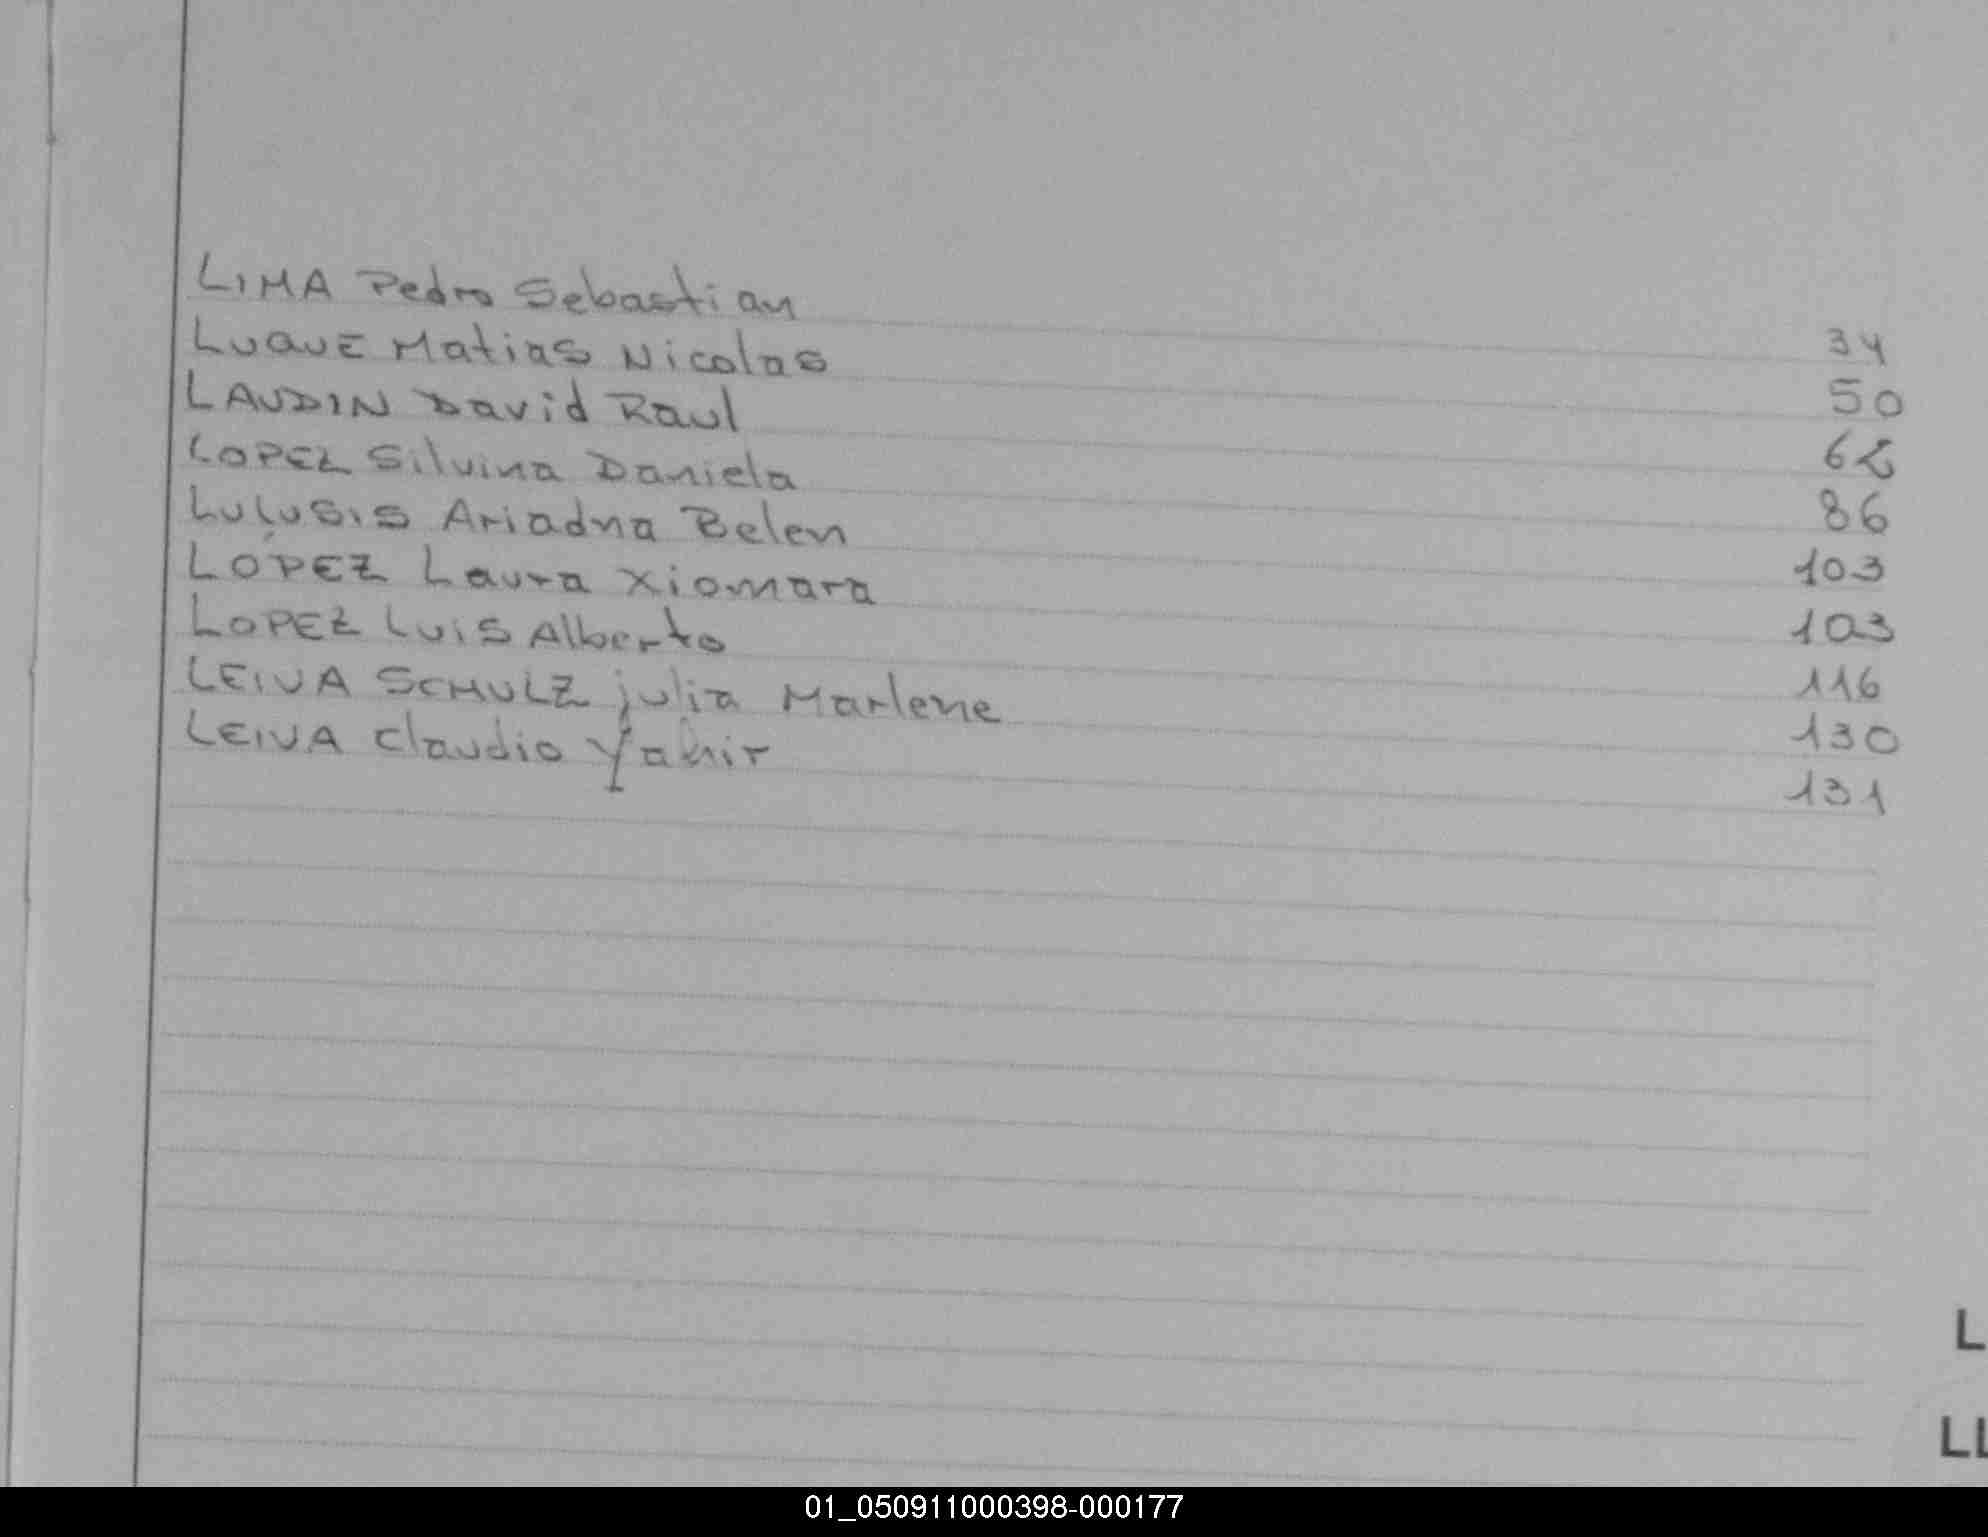 LIMA Pedro Sebastian 34
LUQUE Matias Nicolas 50
LAUDIN David Raul 62
LOPEZ Silvina Daniela 86
LULUSIS Ariadna Belen 103
LÓPEZ Laura Xiomara 103
LOPEZ LUIS Alberto 116
LEIVA SCHULZ julia Marlene 130
LEIVA Claudio Yahir 131
L
LL
01_050911000398-000177